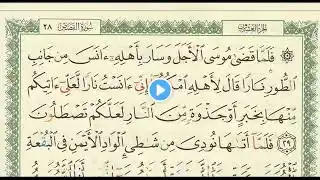 الجزء العشرون سورة القصص ٢٨
۞ فَلَمَّا قَضَىٰ مُوسَى ٱلْأَجَلَ وَسَارَ بِأَهْلِهِۦٓ ءَانَسَ مِن جَانِبِ
ٱلطُّورِ نَارًا قَالَ لِأَهْلِهِ ٱمْكُثُوٓا۟ إِنِّىٓ ءَانَسْتُ نَارًا لَّعَلِّىٓ ءَاتِيكُم
مِّنْهَا بِخَبَرٍ أَوْ جَذْوَةٍ مِّنَ ٱلنَّارِ لَعَلَّكُمْ تَصْطَلُونَ
٢٩ فَلَمَّآ أَتَىٰهَا نُودِىَ مِن شَٰطِئِ ٱلْوَادِ ٱلْأَيْمَنِ فِى ٱلْبُقْعَةِ